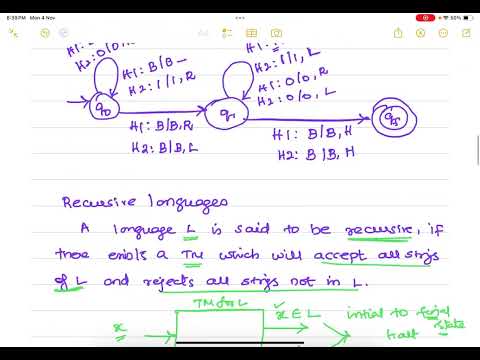 8:39 PM Mon 4 Nov
50%
H1:
H2: 0/0,
H1: B/B –
H2: 1/1, R
H2: 1/1, L
H1: 0/0, R
H2: 0/0, L
q0
q1
H1: B/B, R
H2: B/B, L
H1: B/B, H
H2: B/B, H
Recursive languages
A language L is said to be recursive, if
there exists a TM which will accept all strigs
of L and rejects all strigs not in L.
TM for L
x
x ∈ L
intial to
state
halt